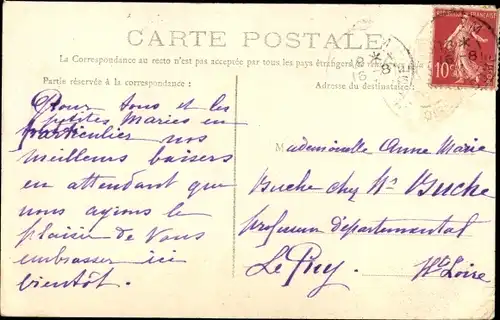 CARTE POSTALE
La Correspondance au recto n'est pas acceptée par tous les pays étrangers
Partie réservée à la correspondance :
Adresse du destinataire
RÉPUBLIQUE FRANÇAISE
10
Pour tous et les
petites Maries en
particulier nos
meilleurs baisers
en attendant que
nous ayions le
plaisir de vous
embrasser ici
bientôt.
M
Mademoiselle Anne Marie
Buche chez Mr Buche
professeur départemental
Le Puy
Hte Loire